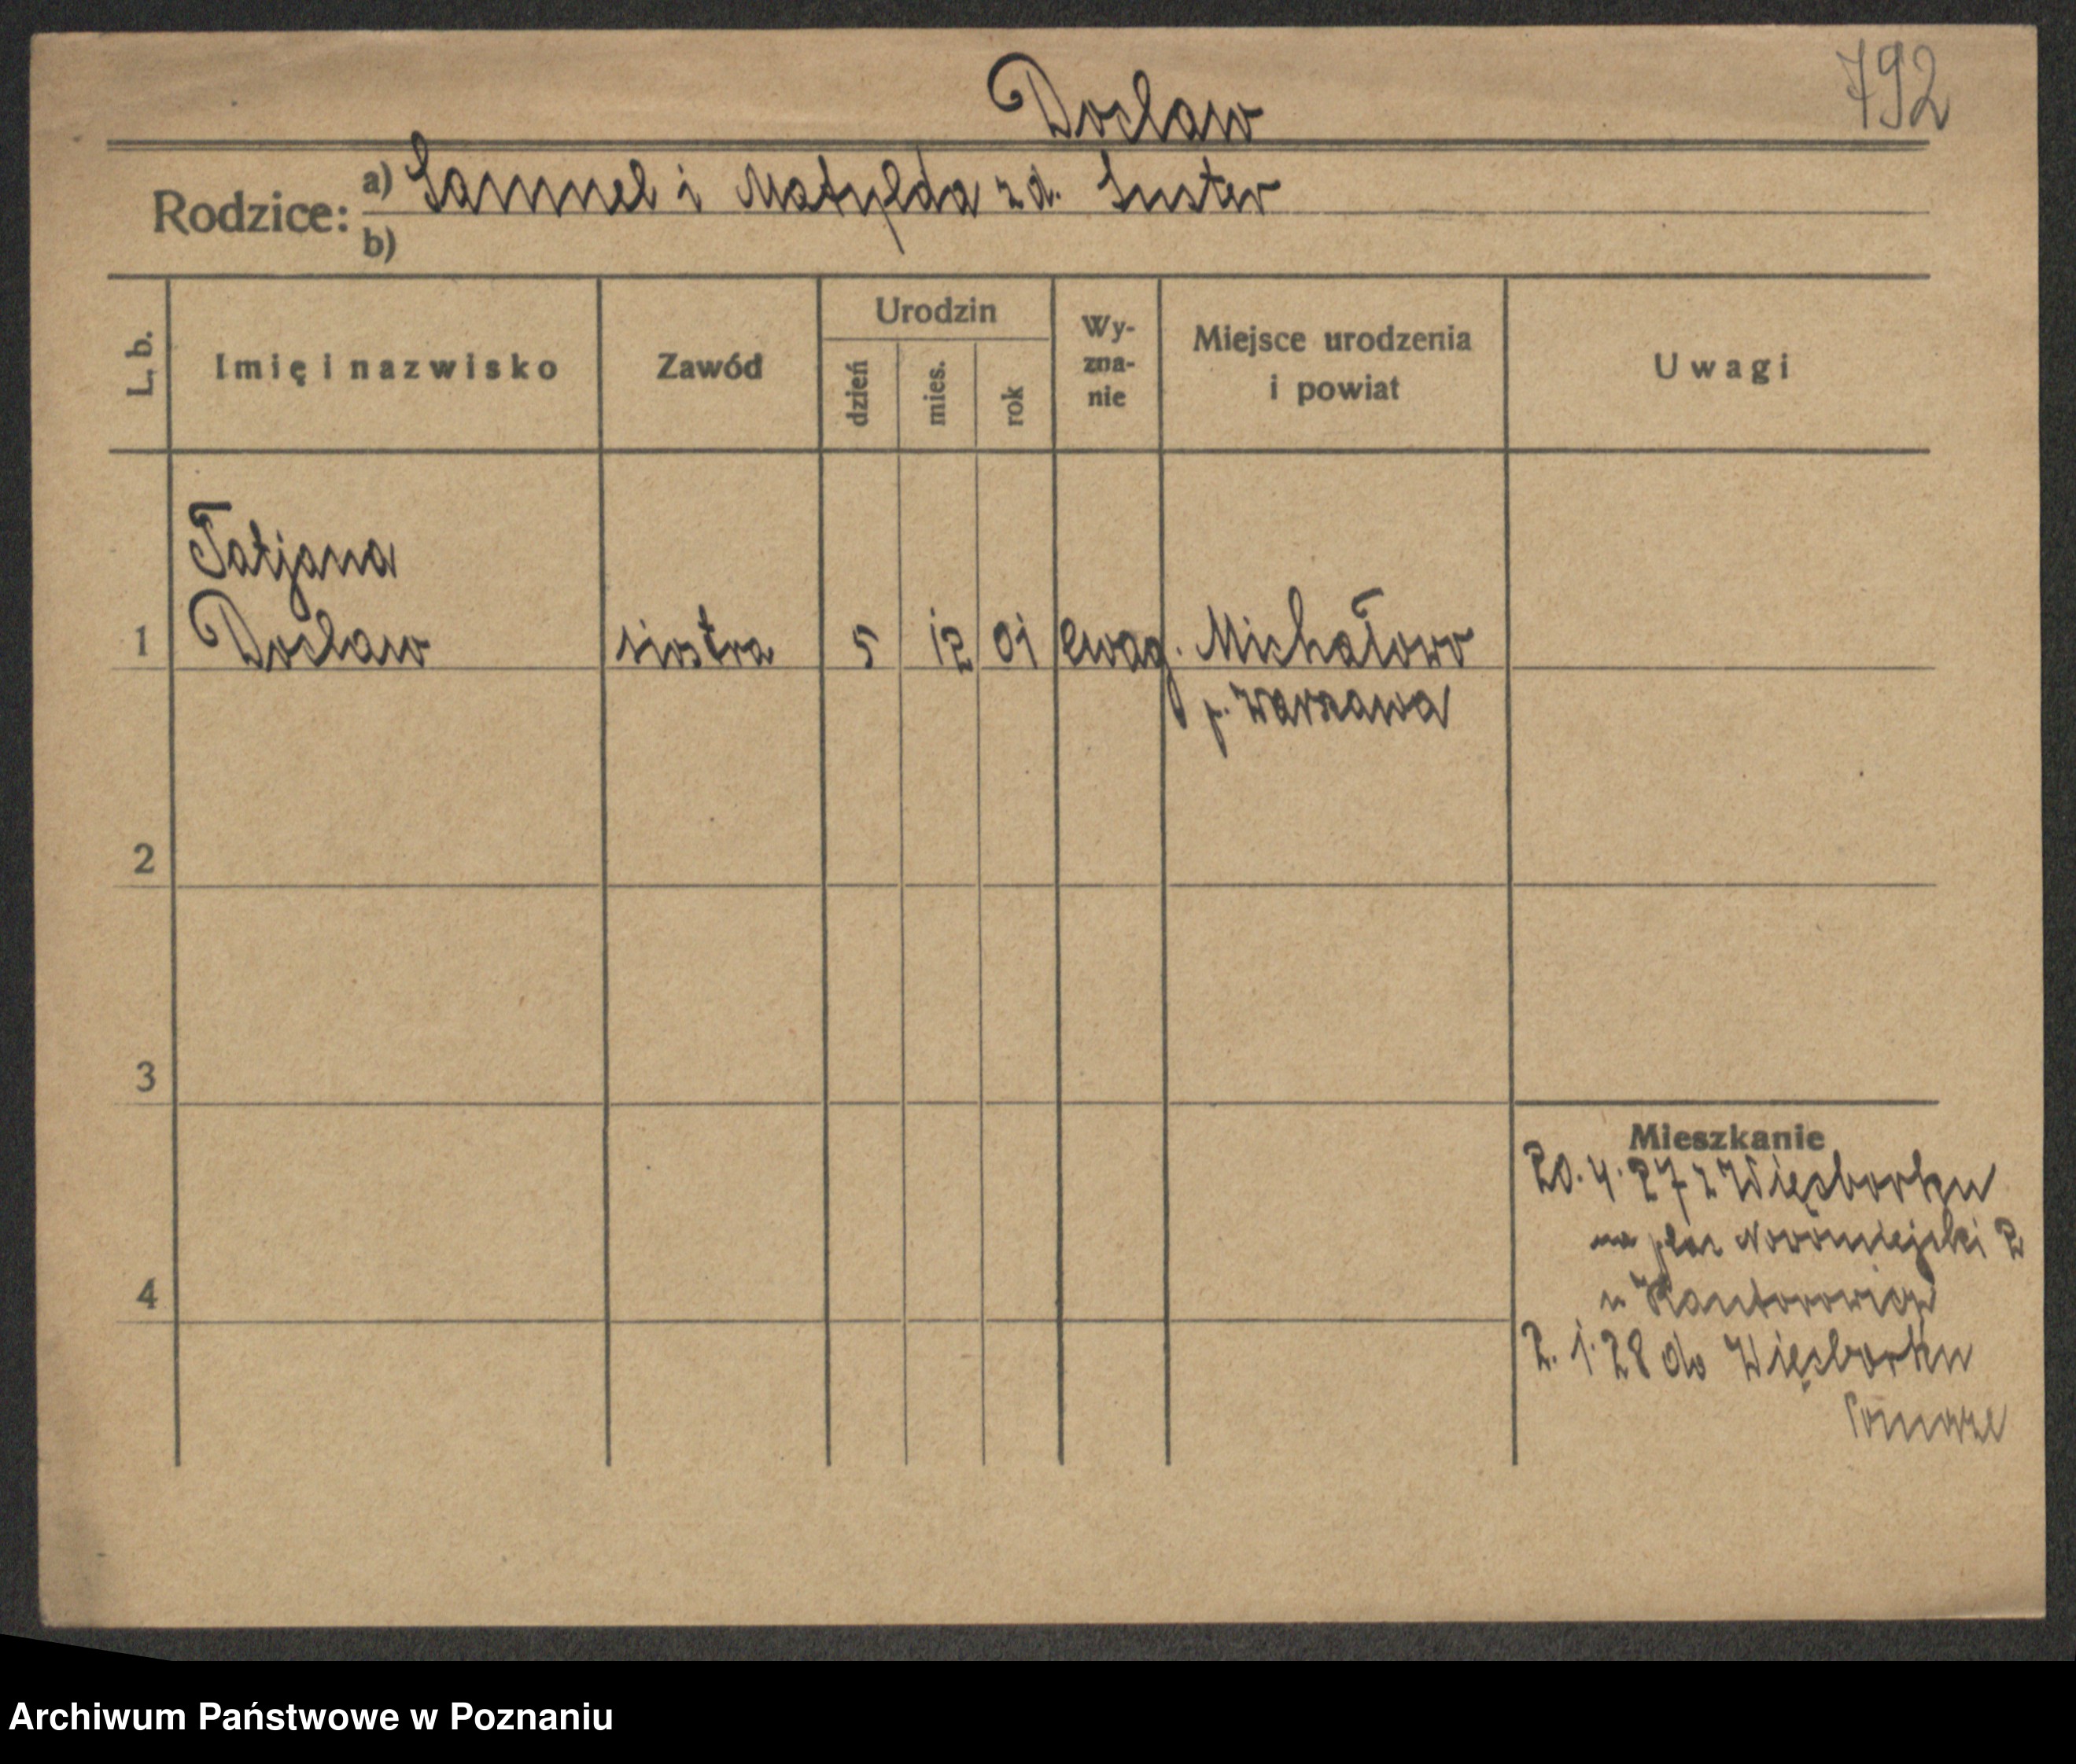 792
Doclaw
Rodzice: a) Samuel i Matylda zd. Luster
b)
L. b. Imię i nazwisko Zawód Urodzin dzień mies. rok Wy-zna-nie Miejsce urodzenia i powiat Uwagi
Tatjana
1 Doclaw siostra 5 12 01 ewag. Michałowo
p. Warszawa
2
3
Mieszkanie
20. 4. 27 z Więcborku
na plac Nowomiejski 2
4
u Kantorowicz
2. 1. 28 do Więcborku
Pomorze
Archiwum Państwowe w Poznaniu